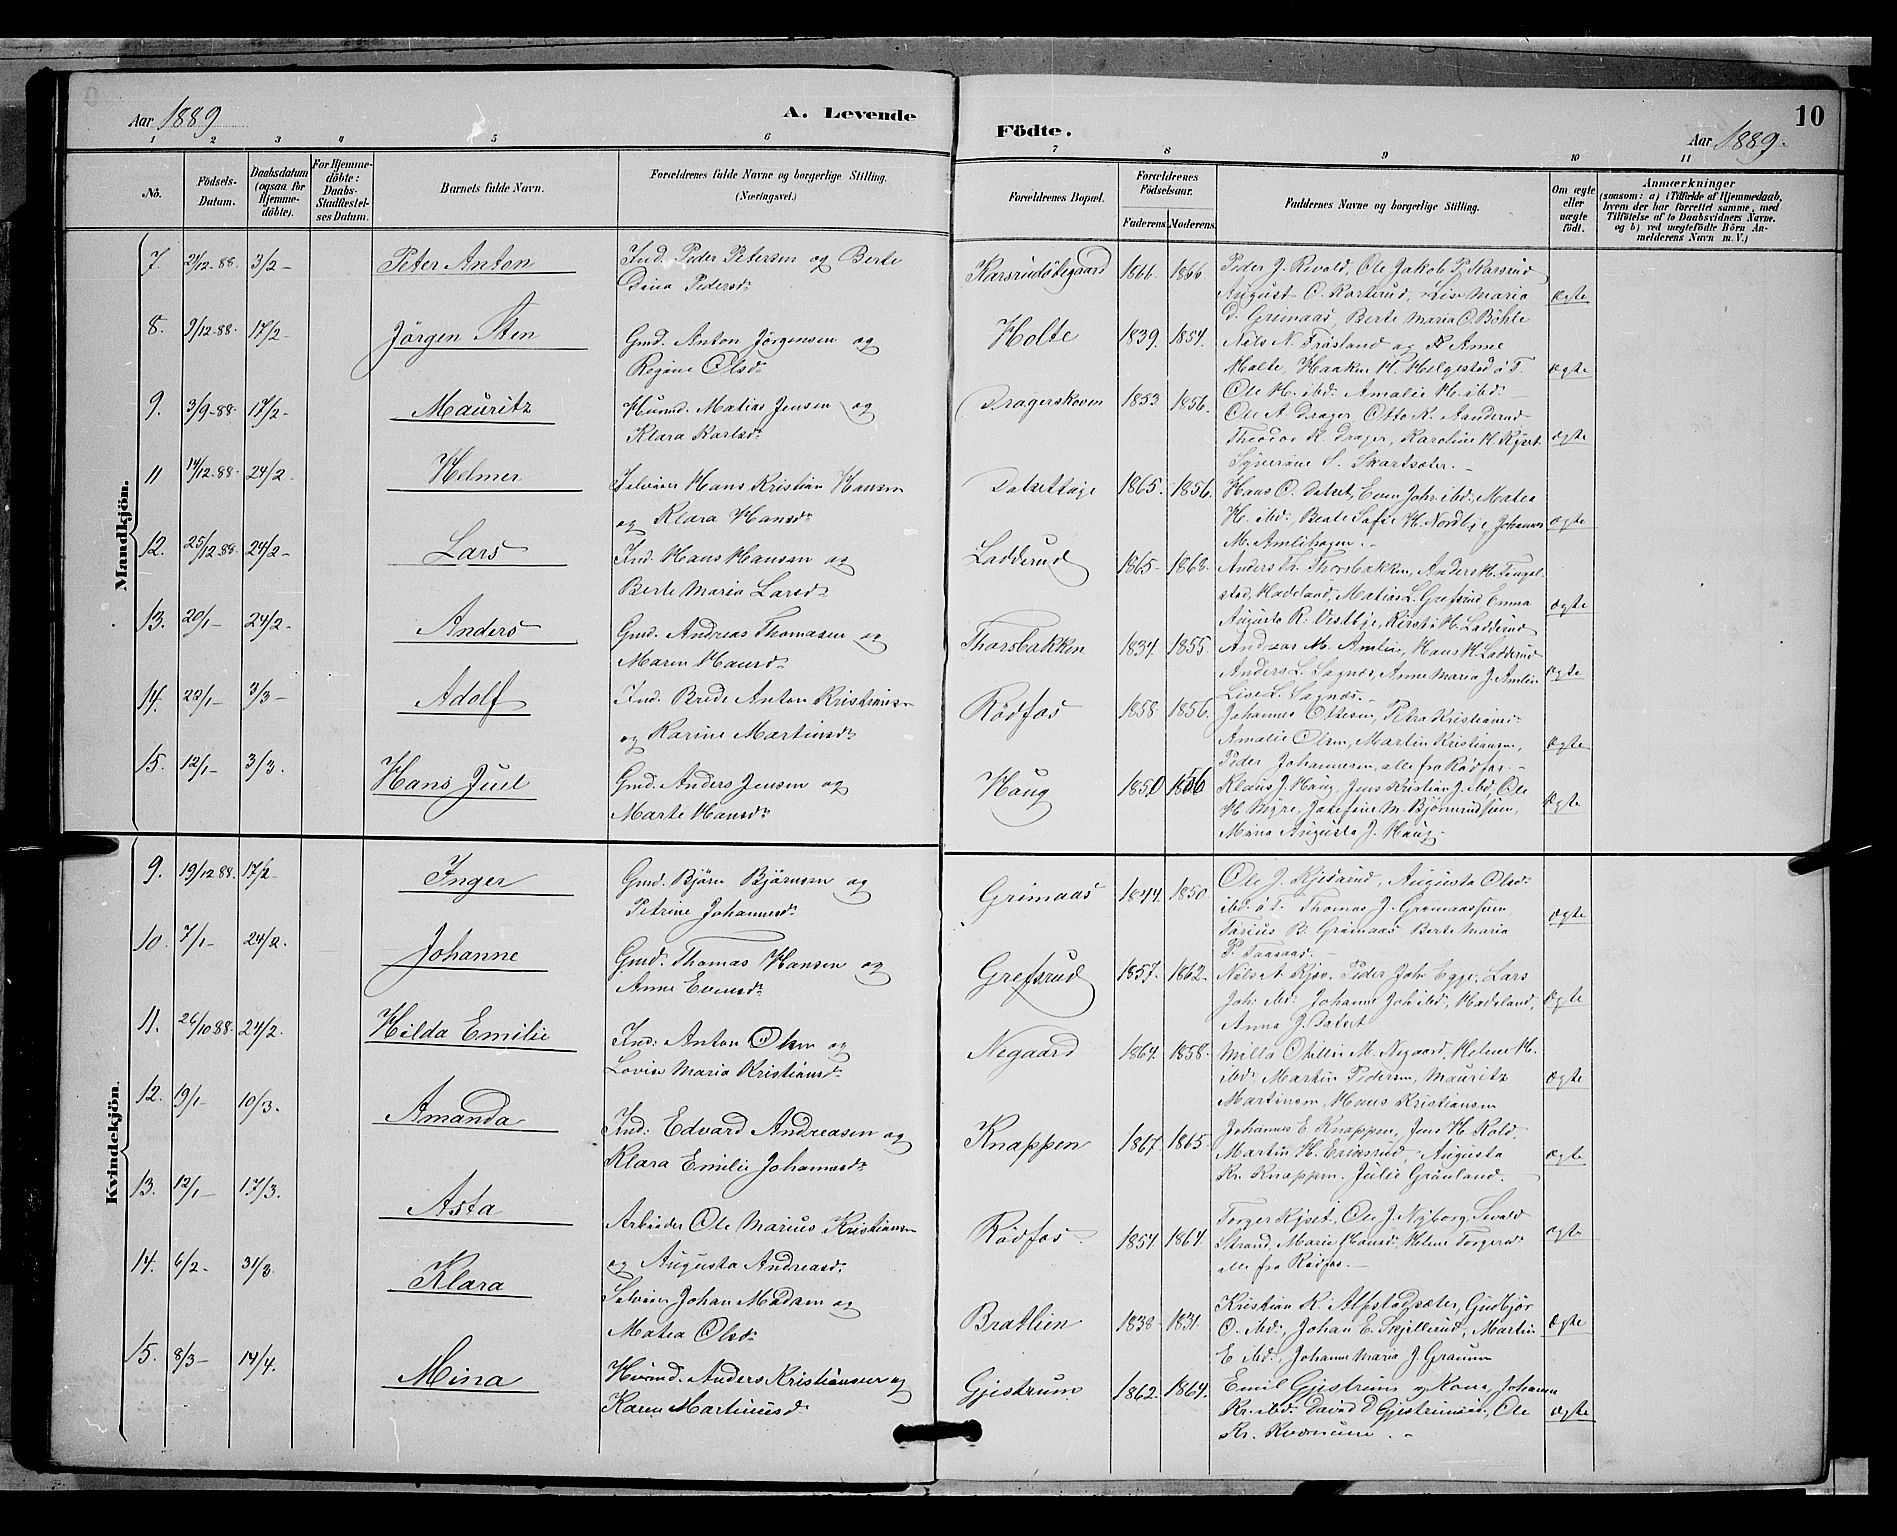 Aar 1889
A. Levende
1 2 3 4 5 6
No. Födsels-Datum. Daabsdatum (ogsaa för Hjemmedöbte). For Hjemmedöbte: Daabs-Stadfæstelses Datum. Barnets fulde Navn. Forældrenes fulde Navne og borgerlige Stilling. (Næringsvei.)
Mandkjön.
7. 21/12-88. 3/2- Peter Anton Ind. Peder Petersen og Berte
Dina Pedersd:
8. 9/12-88. 17/2- Jörgen Sten Gmd. Anton Jörgensen og
Regine Olsd:
9. 3/9-88. 17/2- Mauritz Husmd. Matias Jensen og
Klara Karlsd:
11 14/12-88. 24/2- Helmer Selveier Hans Kristian Hansen
og Klara Hansd:
12. 25/12.88. 24/2- Lars Ind. Hans Hansen og
Berte Maria Larsd:
13. 20/1- 24/2- Anders Gmd. Andreas Thomasen og
Maren Hansd:
14. 22/1- 3/3- Adolf Ind. Brede Anton Kristiansen
og Karine Martinsd:
15. 12/1- 3/3. Hans Juel Gmd. Anders Jensen og
Marte Hansd:
Kvindekjön.
9. 19/12.88. 17/2 Inger Gmd. Björn Björnsen og
Petrine Johannesd:
10. 7/1- 24/2. Johanne Gmd. Thomas Hansen og
Anne Evensd:
11. 26/10.88. 24/2. Hilda Emilie Ind: Anton Olsen og
Lovise Maria Kristiansd:
12. 19/1- 10/3. Amanda Ind: Edvard Andreasen og
Klara Emilie Johannesd:
13. 12/1- 17/3. Asta Arbeider Ole Marius Kristiansen
og Augusta Andreasd:
14. 6/2- 31/3. Klara Selveier Johan Madsen og
Matea Olsd:
15. 8/3- 14/4. Mina Husmd. Anders Kristiansen og
Karen Martinusd:
10
Födte.
Aar 1889.
7 8 9 10 11
Forældrenes Bopæl. Forældrenes Födselsaar. Faderens Moderens. Faddernes Navne og borgerlige Stilling. Om ægte eller uægte födt. Anmærkninger (saasom: a) i Tilfælde af Hjemmedaab, hvem der har forrettet samme, med Tilföielse af to Daabsvidners Navne, og b) ved uægtefödte Börn Anmelderens Navn m. V.)
Karsrudödegaard 1866. 1866 Peder J. Rivold, Ole Jakob P. Karsrud
August C. Karterud, Lise Maria ægte
D. Grimaas, Berte Maria O. Böhle
Holte 1839. 1854. Nils N. Frösland og Anne
Holte, Haaken H. Helgestad ö T. ægte
Ole H. ibd: Amalie H. ibd:
Dragerskoven 1853 1856. Ole A. Drager, Otto K. Aanderud
Theodor K. Drager, Karoline H. Kjöset ægte
Syverine S. Skartsæter.-
Datsettajе 1865. 1856. Hans O. Datset, Even Joh: ibd:, Matea
H. ibd: Beate Sofie H. Nordbye, Johannes ægte
M. Amlihagen.-
Ladderud 1865- 1868- Anders Th. Thorsbakken, Anders H. Tengelstad,
Hadeland, Matias L. Grefsrud, Emma ægte
Auguste R. Vestbye, Kirsti H. Ladderud
Thorsbakken 1834. 1855. Andreas M. Amlien, Hans H. Ladderud
Anders L. Sagnæs, Anne Maria J. Amlien ægte
Lise L. Sagnæs.-
Rödfos 1858 1856. Johannes Ottesen, Petra Kristiansd:
Amalie Olsen, Martin Kristiansen, ægte
Peder Johannesen, alle fra Rödfos.-
Haug 1850 1856 Klaus J. Haug, Jens Kristian J. ibd, Ole
H. Myre, Josefine M. Bjönnerudseien, ægte
Mina Augusta J. Haug.
Grimaas 1844. 1850. Ole J. Kjeserud, Augusta Olsd:
ibd: ö T. Thomas J. Grimaasseien, ægte
Torius B. Grimaas Berte Maria
P. Taasaas.-
Grefsrud 1857. 1862. Nils A. Kjös, Peder Joh: Egge, Lars
Joh: ibd: Johanne Joh: ibd:, Hadeland, ægte
Anna J. Datset
Negaard 1864. 1858- Milla Otilie M. Negaard, Helene H.
ibd:, Martin Pedersen, Mauritz ægte
Martinsen, Hans Kristiansen
Knappen 1867. 1865. Johannes E. Knappen, Jens H. Kold,
Martin H. Eriksrud, Augusta ægte
Kr. Knappen. Julie Grönland.
Rödfos. 1854. 1864. Torger Kjöset, Ole J. Nyborg, Sevald
Strand, Marie Hansd:, Helene Torgersd: ægte
alle fra Rödfos.-
Bratlien 1838- 1831. Kristian K. Alfstadsæter, Gudbjör
O. ibd:, Johan E. Skjellerud, Martin ægte
E. ibd:, Johanne Maria J. Graum
Gjestrum 1862. 1864. Emil Gjestrum og Kona, Johanna
Kr. ibd: David D Gjestrumsöd, Ole ægte
Kr. Kværnum.-